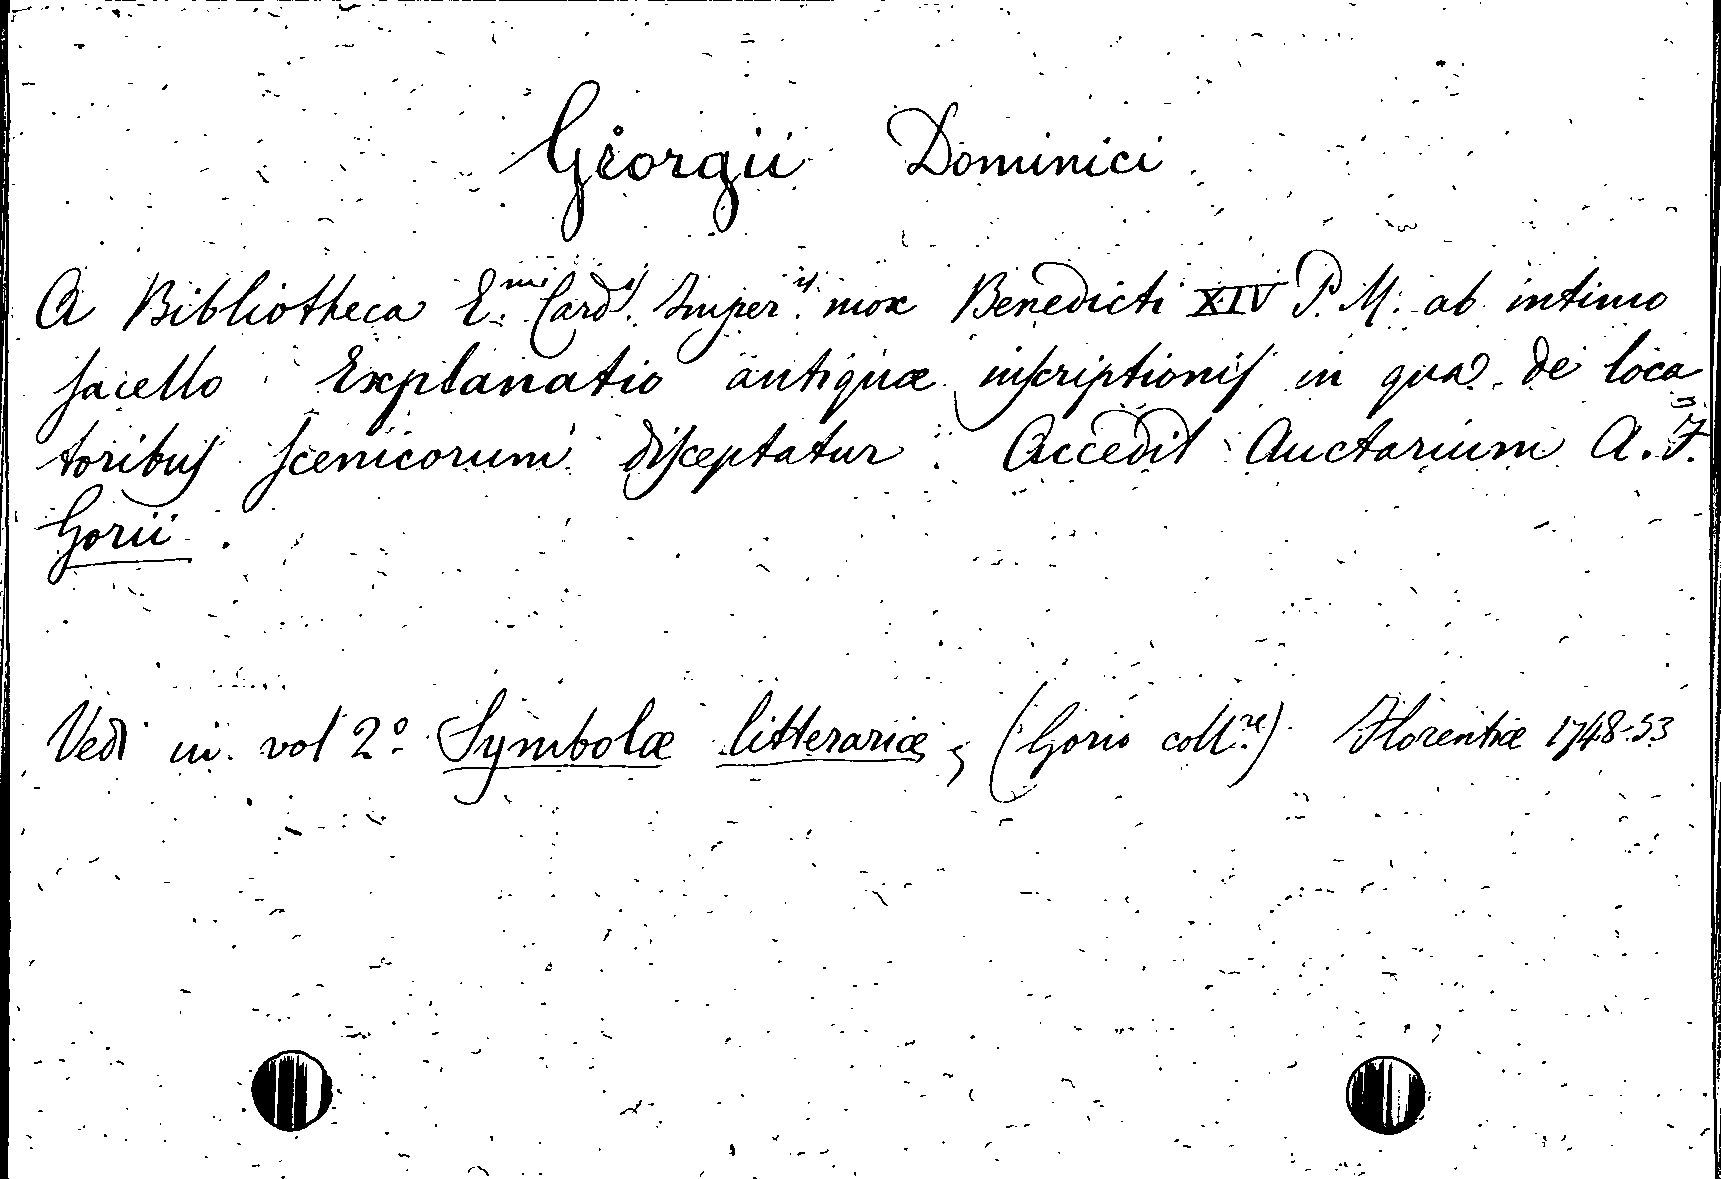 Georgii Dominici
A Bibliotheca E.mi Card.s Imper.is mox Benedicti XIV P. M. ab intimo
sacello Explanatio antiquæ inscriptionis in qua de loca
toribus scenicorum disceptatur. Accedit Auctarium A. F.
Gorii.
Vedi in vol 2º Symbolæ litterariæ, (Gorio coll.re) Florentiæ 1748-53